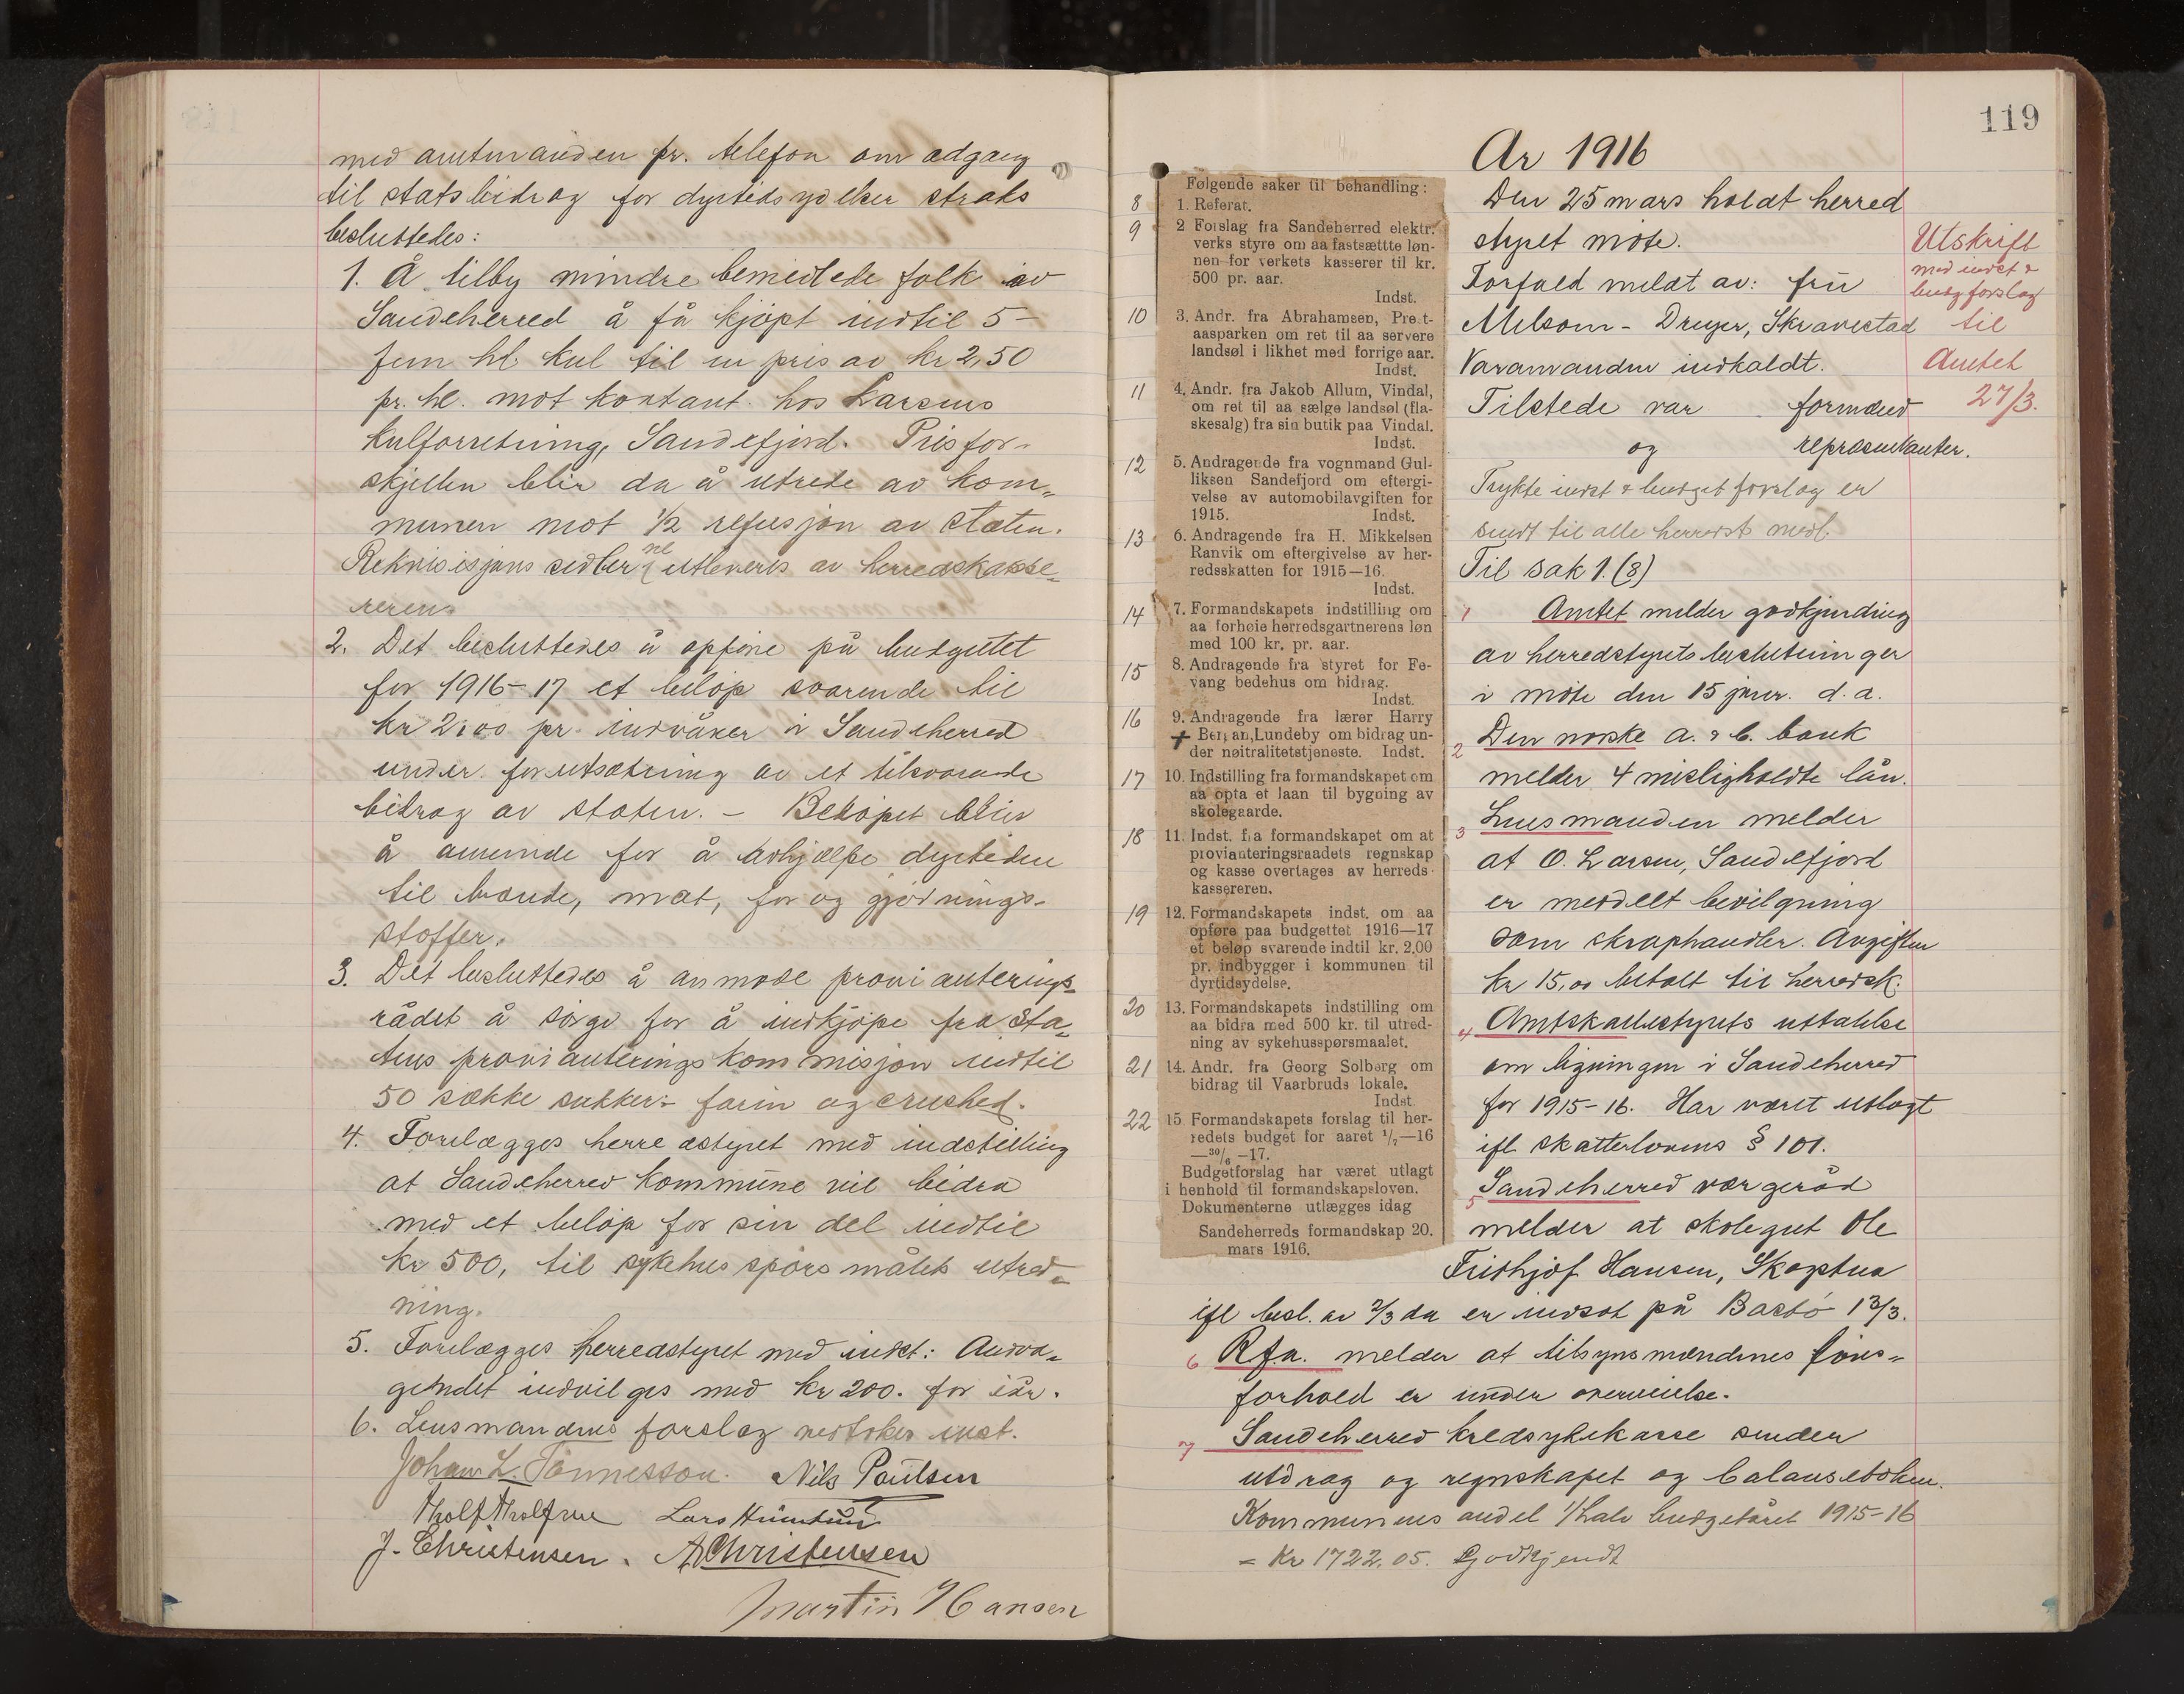 med amtmanden pr. telefon om adgang
til statsbidrag for dyrtidsydelser straks
besluttedes:
1. Å tilby mindre bemidlede folk av
Sandeherred å få kjøpt indtil 5 -
fem hl kul til en pris av kr 2,50
pr. hl. mot kontant hos Larsens
kulforretning, Sandefjord. Prisfor-
skjellen blir da å utrede av kom-
munen mot 1/2 refusjon av staten.
Rekvisisjons sedler utleveres av herredskasse-
reren.
2. Det besluttedes å opføre på budgettet
for 1916-17 et beløp svarende til
kr 2,00 pr. indvåner i Sandeherred
under forutsætning av et tilsvarende
bidrag av staten. - Beløpet blir
å anvende for å avhjælpe dyrtiden
til brænde, mat, for og gjødnings-
stoffer.
3. Det besluttedes å anmode provianterings-
rådet å sørge for å indkjøpe fra Sta-
tens provianteringskommisjon indtil
50 sække sukker: farin og crushed.
4. Forelægges herredstyret med indstilling
at Sandeherred kommune vil bidra
med et beløp for sin del indtil
kr 500, til sykehusspørsmålets utred-
ning.
5. Forelægges herredstyret med indst: Andra-
gendet indvilges med kr 200. for iår.
6. Lensmandens forslag vedtokes enst.
Johan L. Tønnesson. Nils Paulsen
Tholf Tholfsen Lars
J. Christensen. A Christensen
Martin Hansen
119
År 1916
Følgende saker til behandling:
8 1. Referat.
9 2 Forslag fra Sandeherred elektr.
verks styre om aa fastsættte løn-
nen for verkets kasserer til kr.
500 pr. aar.
Indst.
10 3. Andr. fra Abrahamsen, Prest-
aasparken om ret til aa servere
landsøl i likhet med forrige aar.
Indst.
11 4. Andr. fra Jakob Allum, Vindal,
om ret til aa sælge landsøl (fla-
skesalg) fra sin butik paa Vindal.
Indst.
12 5. Andragende fra vognmand Gul-
liksen Sandefjord om eftergi-
velse av automobilavgiften for
1915. Indst.
13 6. Andragende fra H. Mikkelsen
Ranvik om eftergivelse av her-
redsskatten for 1915—16.
Indst.
14 7. Formandskapets indstilling om
aa forhøie herredsgartnerens løn
med 100 kr. pr. aar.
15 8. Andragende fra styret for Fe-
vang bedehus om bidrag.
Indst.
16 9. Andragende fra lærer Harry
+ Berjan, Lundeby om bidrag un-
der nøitralitetstjeneste. Indst.
17 10. Indstilling fra formandskapet om
aa opta et laan til bygning av
skolegaarde.
18 11. Indst. fra formandskapet om at
provianteringsraadets regnskap
og kasse overtages av herreds-
kassereren.
19 12. Formandskapets indst. om aa
opføre paa budgettet 1916—17
et beløp svarende indtil kr. 2,00
pr. indbygger i kommunen til
dyrtidsydelse.
20 13. Formandskapets indstilling om
aa bidra med 500 kr. til utred-
ning av sykehusspørsmaalet.
21 14. Andr. fra Georg Solberg om
bidrag til Vaarbruds lokale.
Indst.
22 15. Formandskapets forslag til her-
redets budget for aaret 1/7—16
—30/6 —17.
Budgetforslag har været utlagt
i henhold til formandskapsloven.
Dokumenterne utlægges idag
Sandeherreds formandskap 20.
mars 1916.
Den 25 mars holdt herred
styret møte.
Forfald meldt av: fru
Melsom - Dreyer, Skravestad
Varamanden indkaldt.
Tilstede var formænd
og repræsentanter.
Trykte indst & budget forslag er
sendt til alle herredst. medl.
Utskrift
med indst &
budg forslag
til
Amtet
27/3.
Til sak 1. (8)
1 Amtet melder godkjending
av herredstyrets beslutninger
i møte den 15 janr. d.a.
2 Den norske a. & b. bank
melder 4 misligholdte lån.
3 Lensmanden melder
at O. Larsen, Sandefjord
er meddelt bevilgning
som skraphandler. Avgiften
kr 15,00 betalt til herredsk.
4 Amtskattestyrets uttalelse
om ligningen i Sandeherred
for 1915-16. Har været utlagt
ifl skattelovens § 101.
5 Sandeherred vergeråd
melder at skolegut Ole
Fridhjof Hansen, Skoptua
ifl besl. av 2/3 da er indsat på Bastø 13/3.
6 Rfa. melder at tilsynsmændenes løns-
forhold er under overveielse.
7 Sandeherred kredssykekasse sender
utdrag og regnskapet og balanseboken.
Kommunens andel 1/halv budgetåret 1915-16
= Kr 1722.05. Godkjendt